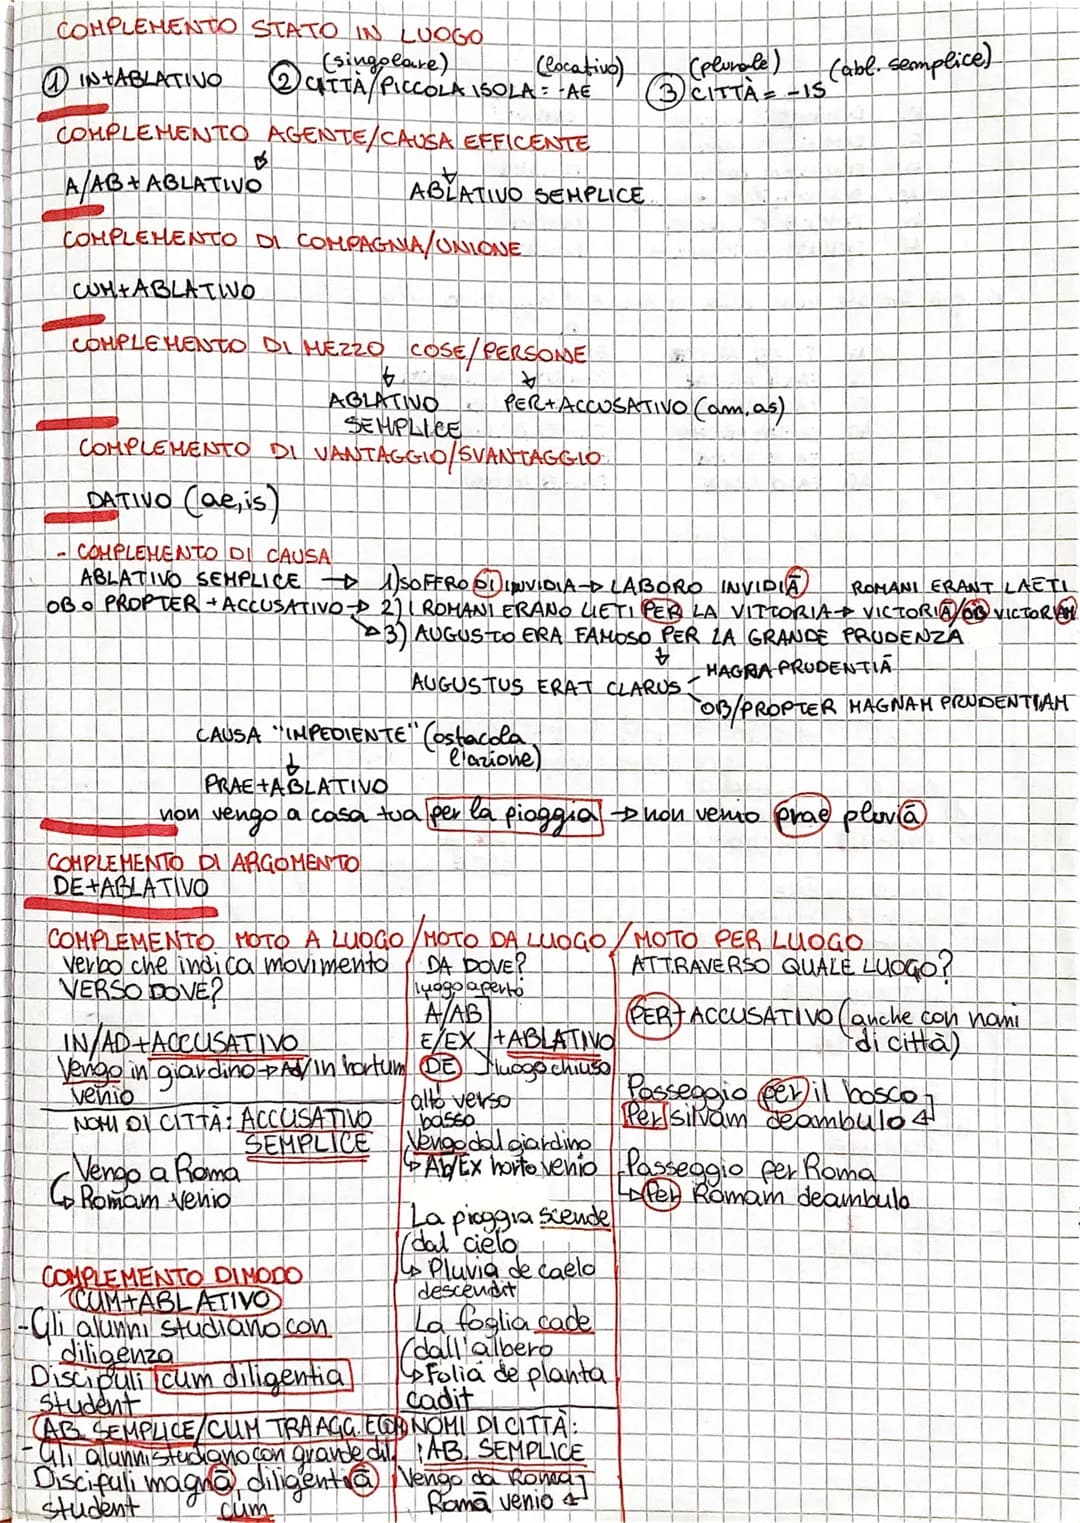 COMPLEMENTO STATO IN LUOGO
(singolare) (locativo) (plurale) (abl. semplice)
① IN+ABLATIVO ② CITTÀ/PICCOLA ISOLA = -AE ③ CITTÀ = -IS
COMPLEMENTO AGENTE/CAUSA EFFICENTE
A/AB+ABLATIVO ABLATIVO SEMPLICE
COMPLEMENTO DI COMPAGNIA/UNIONE
CUM+ABLATIVO
COMPLEMENTO DI MEZZO COSE/PERSONE
ABLATIVO PER+ACCUSATIVO (am, as)
SEMPLICE
COMPLEMENTO DI VANTAGGIO/SVANTAGGIO
DATIVO (ae, is)
- COMPLEMENTO DI CAUSA
ABLATIVO SEMPLICE → 1) SOFFRO DI INVIDIA → LABORO INVIDIĀ ROMANI ERANT LAETI
OB O PROPTER + ACCUSATIVO → 2) I ROMANI ERANO LIETI PER LA VITTORIA → VICTORIĀ/OB VICTORIAM
→ 3) AUGUSTO ERA FAMOSO PER LA GRANDE PRUDENZA
MAGRA PRUDENTIĀ
AUGUSTUS ERAT CLARUS
OB/PROPTER MAGNAM PRUDENTIAM
CAUSA "IMPEDIENTE" (ostacola
l'azione)
PRAE+ABLATIVO
non vengo a casa tua per la pioggia → non venio prae pluviā
COMPLEMENTO DI ARGOMENTO
DE+ABLATIVO
COMPLEMENTO MOTO A LUOGO / MOTO DA LUOGO / MOTO PER LUOGO
verbo che indica movimento
VERSO DOVE?
IN/AD+ACCUSATIVO
Vengo in giardino → Ad/in hortum
venio
NOMI DI CITTÀ: ACCUSATIVO
SEMPLICE
Vengo a Roma
↳ Romam venio
DA DOVE?
luogo aperto
A/AB
E/EX +ABLATIVO
DE luogo chiuso
alto verso
basso
Vengo dal giardino
↳ Ab/Ex horto venio
La pioggia scende
dal cielo
↳ Pluvia de caelo
descendit
La foglia cade
dall'albero
↳ Folia de planta
cadit
NOMI DI CITTÀ:
AB. SEMPLICE
Vengo da Roma
Romā venio
ATTRAVERSO QUALE LUOGO?
PER+ACCUSATIVO (anche con nomi
di città)
Passeggio per il bosco
Per silvam deambulo
Passeggio per Roma
↳ Per Romam deambulo
COMPLEMENTO DI MODO
CUM+ABLATIVO
- Gli alunni studiano con
diligenza
Discipuli cum diligentia
student
AB. SEMPLICE/CUM TRA AGG. E
- Gli alunni studiano con grande dil.
Discipuli magnā diligentiā
student cum